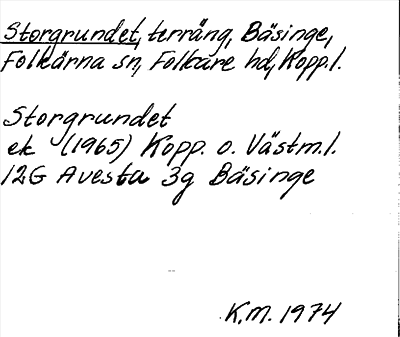 Storgrundet, terräng, Bäsinge,
Folkärna sn, Folkare hd, Kopp.l.
Storgrundet
ek (1965) Kopp. o. Västm.l.
12G Avesta 3g Bäsinge
K.M. 1974